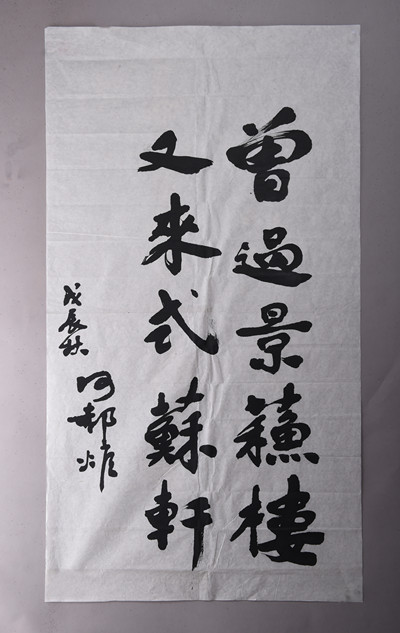 曾過景蘓樓
又來式蘇軒
戊辰秋
何郝炬